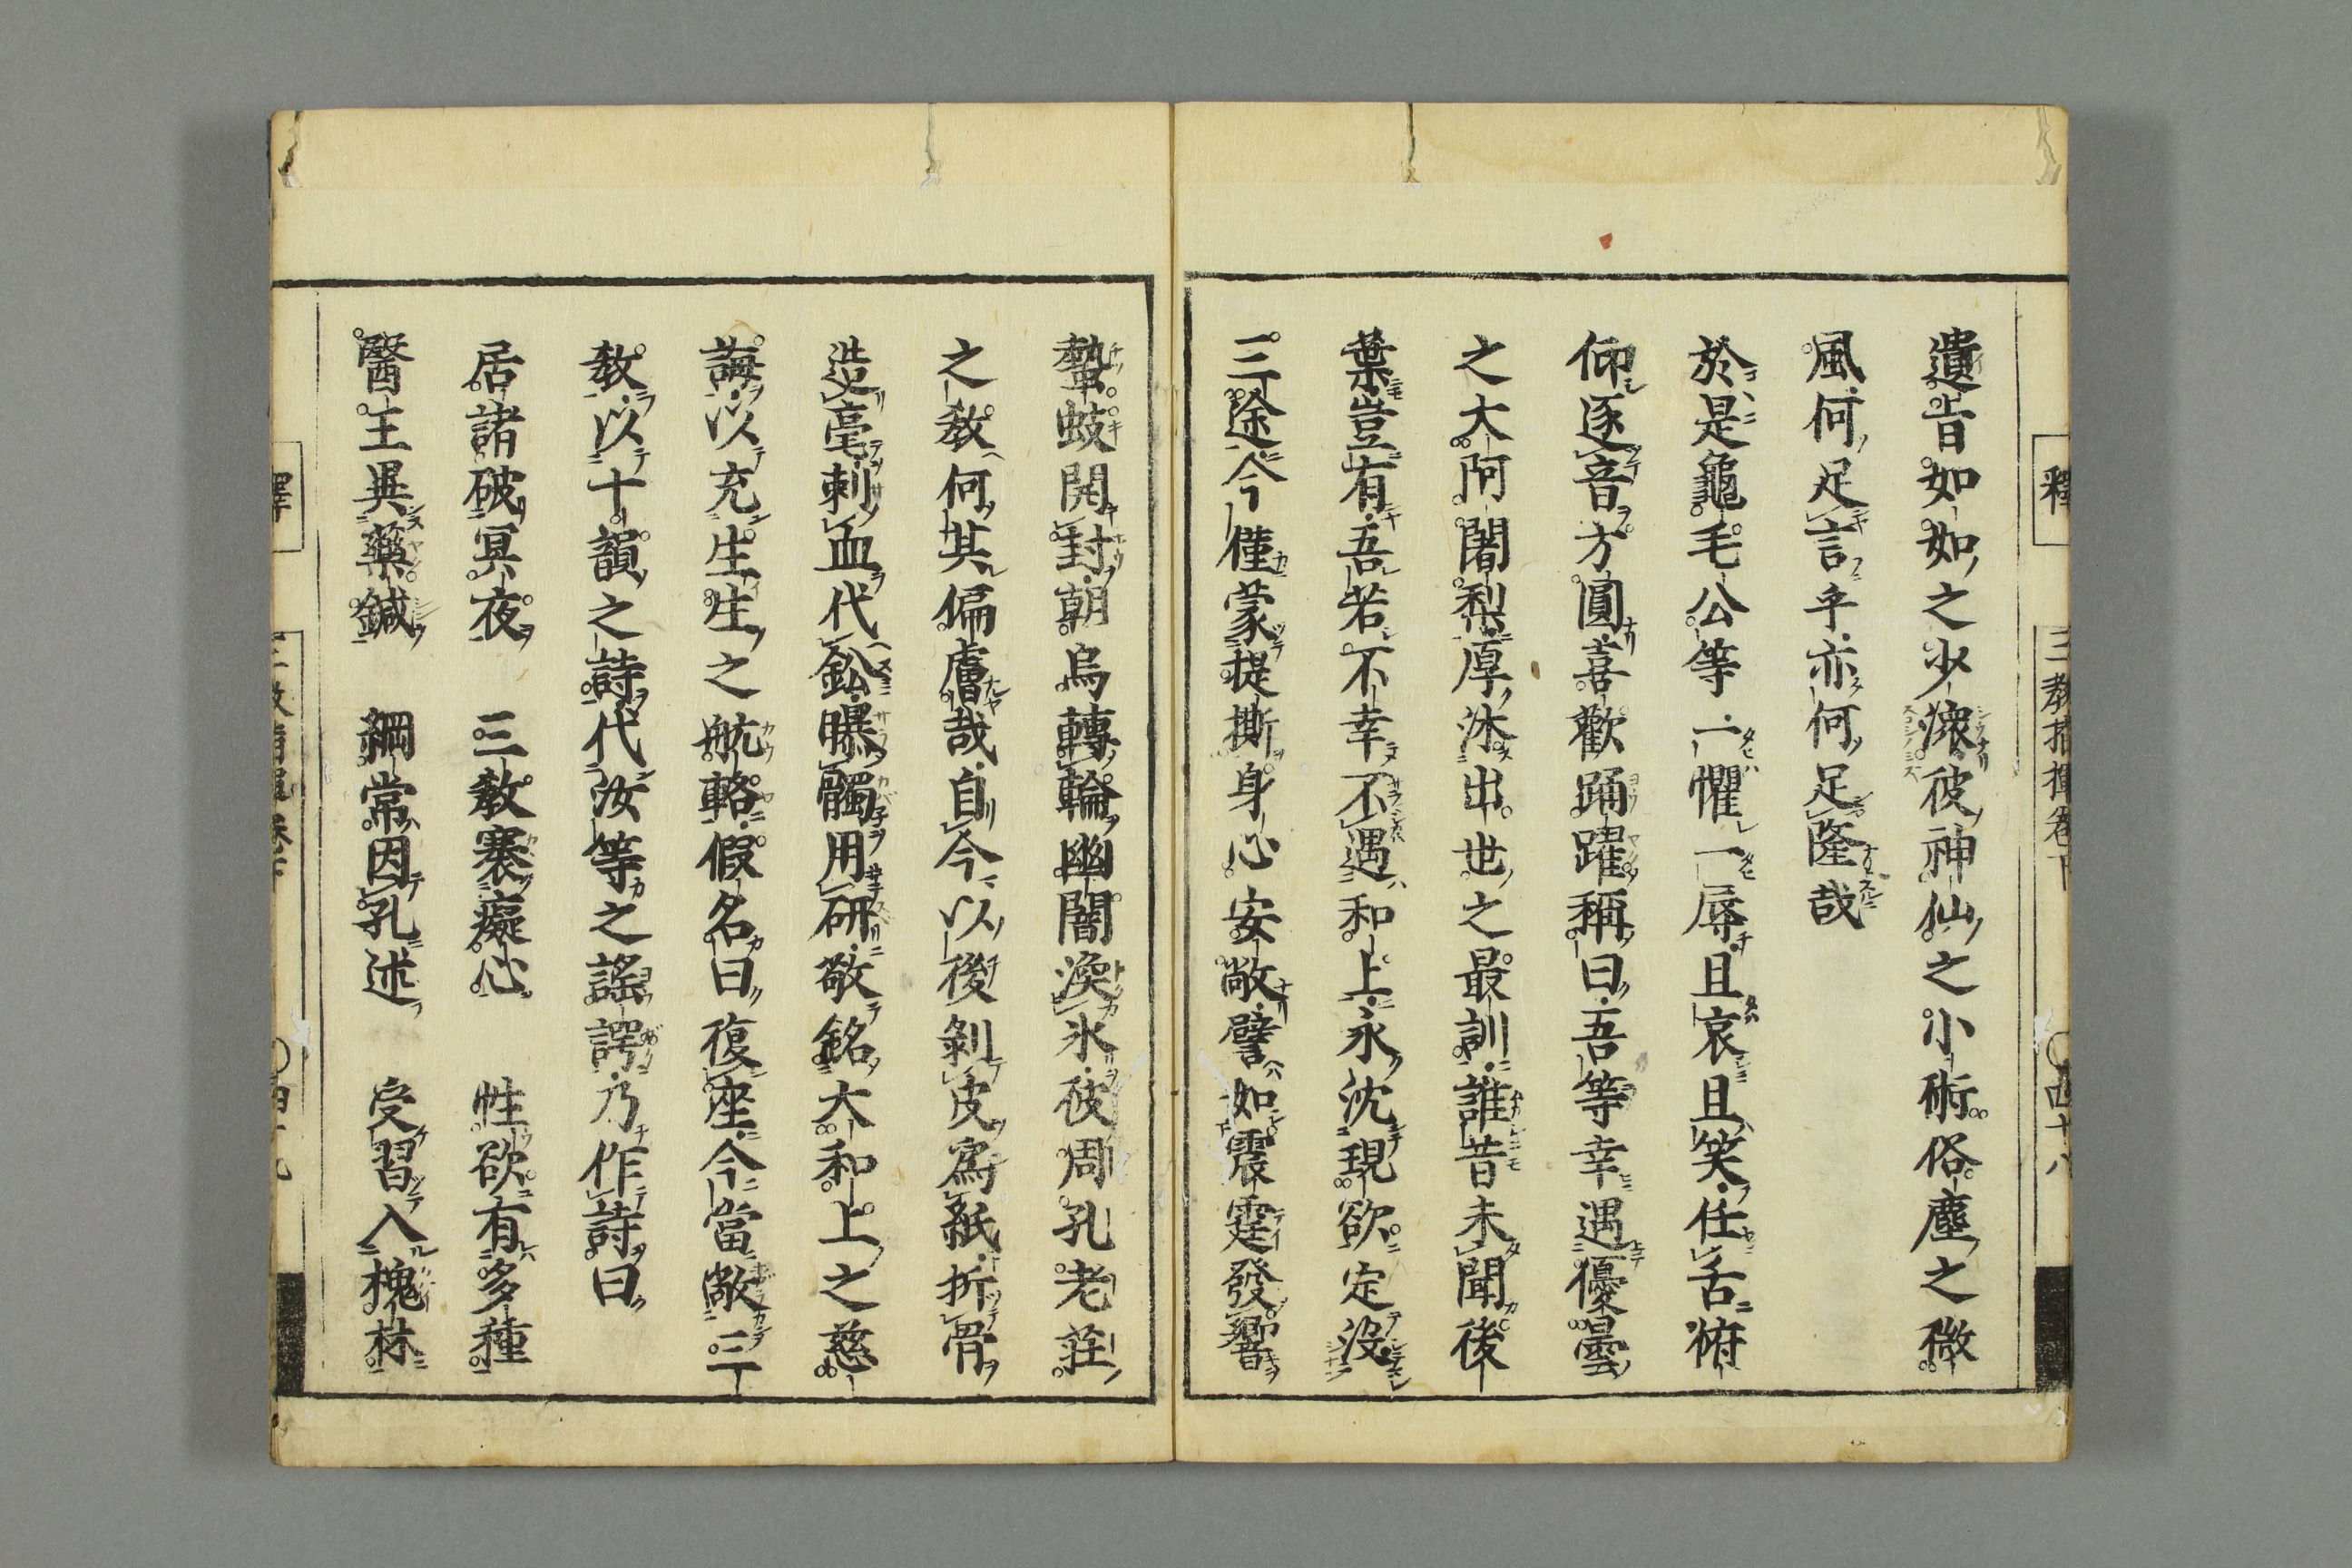 三教指揮卷下
四十八
遺旨如如之少濠彼神仙之小術俗塵之微
風何足言乎亦何足隆哉
於是龜毛公等一懼一辱且哀且笑任舌俯
仰逐音方圓喜歡踊躍稱曰吾等幸遇優曇
之大阿闍梨厚沐出世之最訓誰昔未聞後
葉豈有吾若不幸不遇和上永沈現欲定没
三途今僅蒙提撕身心安敞譬如震霆發響
蟄蚑開封朝烏轉輪幽闇渙氷彼周孔老莊
之教何其偏膚哉自今以後剝皮爲紙折骨
造毫刺血代鈆曝髑用研敬銘大和上之慈
誨以充生生之航輅假名曰復座今當敞三
教以十韻之詩代汝等之謡諤乃作詩曰
居諸破冥夜 三教褰癡心 性欲有多種
醫王異藥鍼 綱常因孔述 受習入槐林